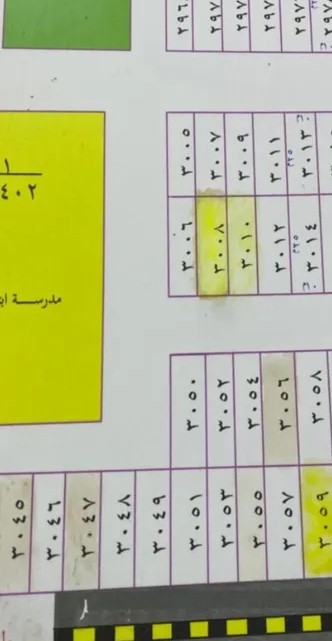 ٣٠٠٥
٣٠٠٧
٣٠٠٩
٣٠١١
٣٠١٣
٣٠٠٦
٣٠٠٨
٣٠١٠
٣٠١٢
٣٠١٤
١
٤٠٢
مدرسة
٣٠٥٠
٣٠٥٢
٣٠٥٤
٣٠٥٦
٣٠٥٨
٣٠٤٥
٣٠٤٦
٣٠٤٧
٣٠٤٨
٣٠٤٩
٣٠٥١
٣٠٥٣
٣٠٥٥
٣٠٥٧
٣٠٥٩